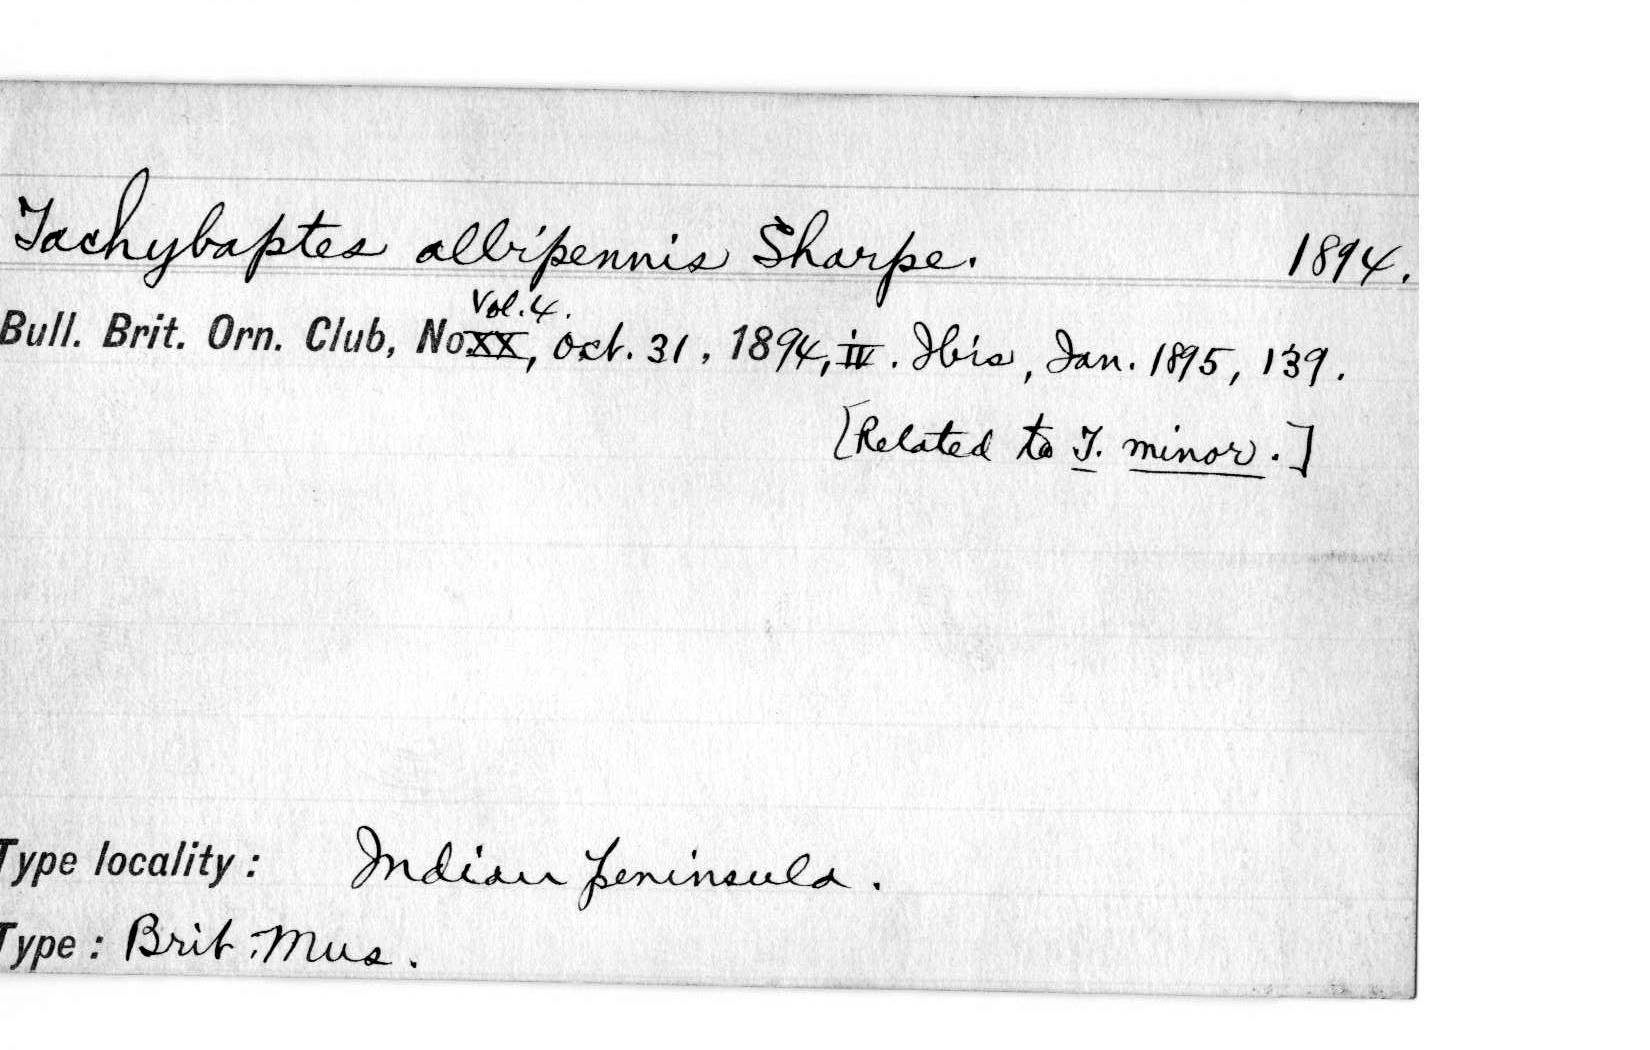 Tachybaptes albipennis Sharpe. 1894.
Vol. 4.
Bull. Brit. Orn. Club, No. XX, Oct. 31, 1894, iv. Ibis, Jan. 1895, 139.
[Related to T. minor.]
Type locality: Indian peninsula.
Type: Brit. Mus.